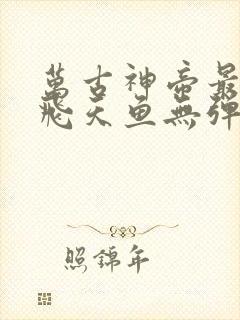 萬古神帝最
飛天魚無彈
照錦年